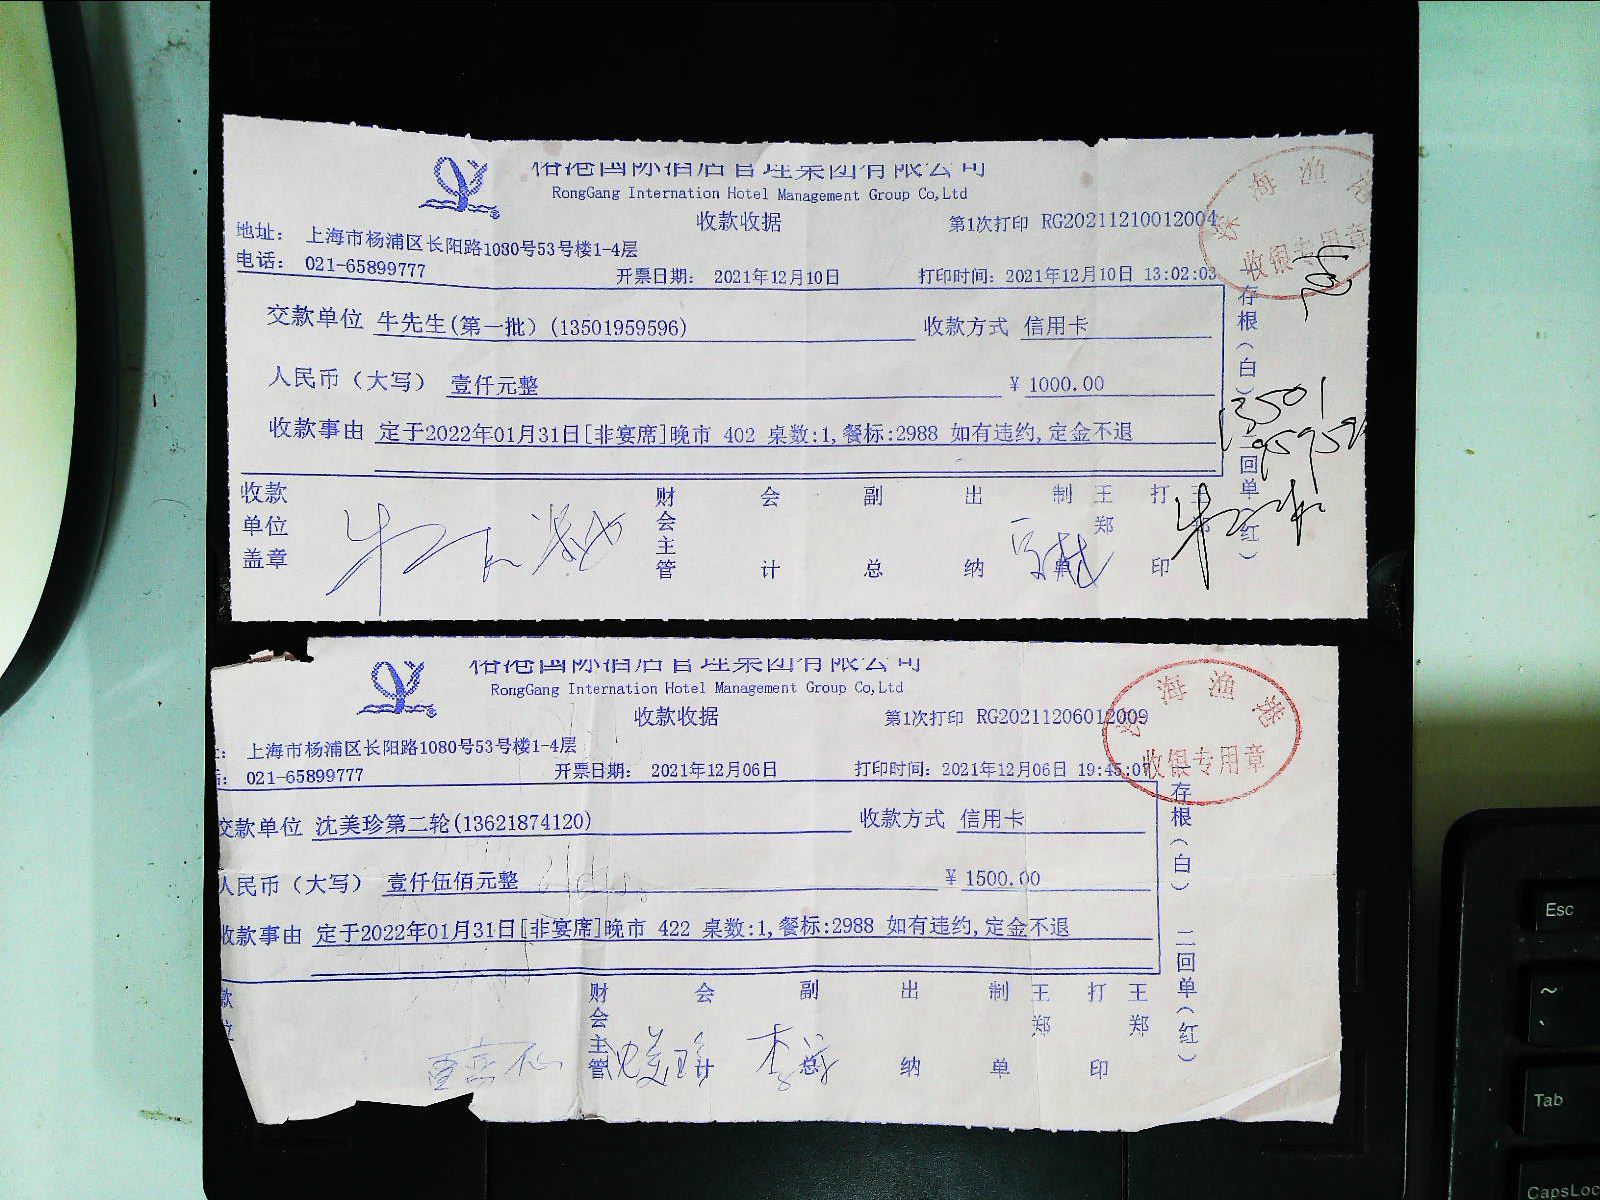 榕港国际酒店管理集团有限公司
RongGang Internation Hotel Management Group Co,Ltd
收款收据
第1次打印 RG20211210012004
地址： 上海市杨浦区长阳路1080号53号楼1-4层
电话： 021-65899777
开票日期： 2021年12月10日
打印时间：2021年12月10日 13:02:03
交款单位 牛先生(第一批)(13501959596)
收款方式 信用卡
人民币（大写） 壹仟元整
￥ 1000.00
收款事由 定于2022年01月31日[非宴席]晚市 402 桌数:1,餐标:2988 如有违约,定金不退
收款单位盖章
财会主管
会计
副总
出纳
制单 王郑
打印
一存根（白） 二回单（红）
珠海渔港
收银专用章
402
13501
榕港国际酒店管理集团有限公司
RongGang Internation Hotel Management Group Co,Ltd
收款收据
第1次打印 RG20211206012009
上海市杨浦区长阳路1080号53号楼1-4层
021-65899777
开票日期： 2021年12月06日
打印时间：2021年12月06日 19:45:07
交款单位 沈美珍第二轮(13621874120)
收款方式 信用卡
人民币（大写） 壹仟伍佰元整
￥ 1500.00
收款事由 定于2022年01月31日[非宴席]晚市 422 桌数:1,餐标:2988 如有违约,定金不退
款
财会主管
会计
副总
出纳
制单 王郑
打印 王郑
沈美珍
一存根（白） 二回单（红）
珠海渔港
收银专用章
Esc
~
Tab
CapsLoc